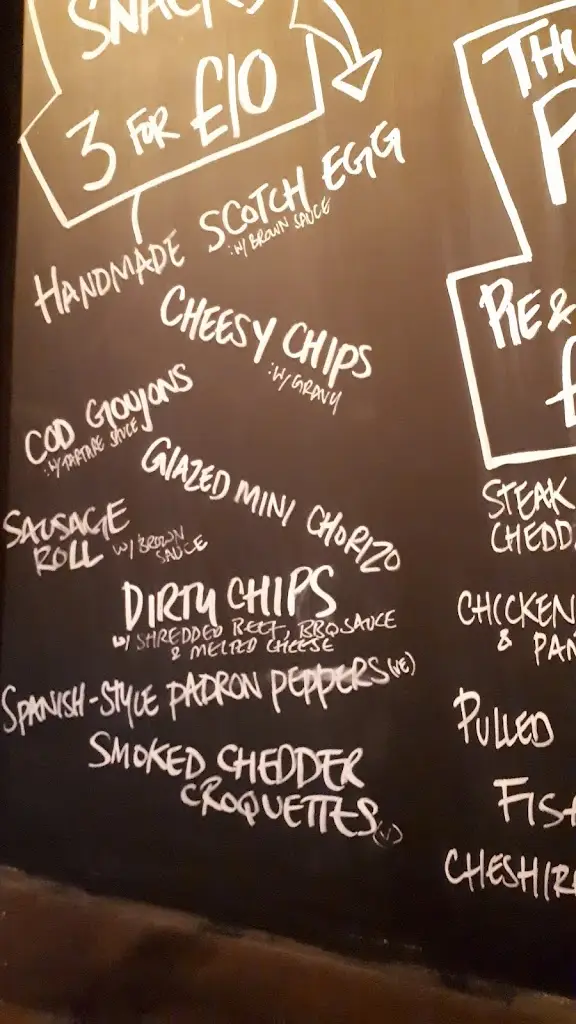 SNACKS
3 FOR £10
HANDMADE SCOTCH EGG
:W/ BROWN SAUCE
CHEESY CHIPS
:W/ GRAVY
COD GOUJONS
:W/ TARTARE SAUCE
GLAZED MINI CHORIZO
SAUSAGE
ROLL W/ BROWN
SAUCE
DIRTY CHIPS
W/ SHREDDED BEEF, BBQ SAUCE
& MELTED CHEESE
SPANISH-STYLE PADRON PEPPERS (VE)
SMOKED CHEDDER
CROQUETTES (V)
THU
P
PIE &
£
STEAK
CHEDD
CHICKEN
& PAN
PULLED
FISH
CHESHIRE